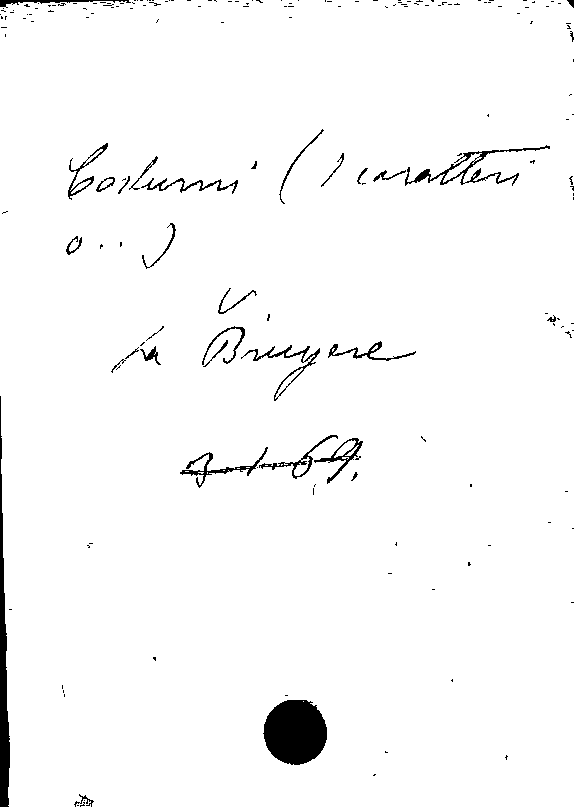 Costumi (I caratteri
o . . )
La Bruyere
3.1.69.